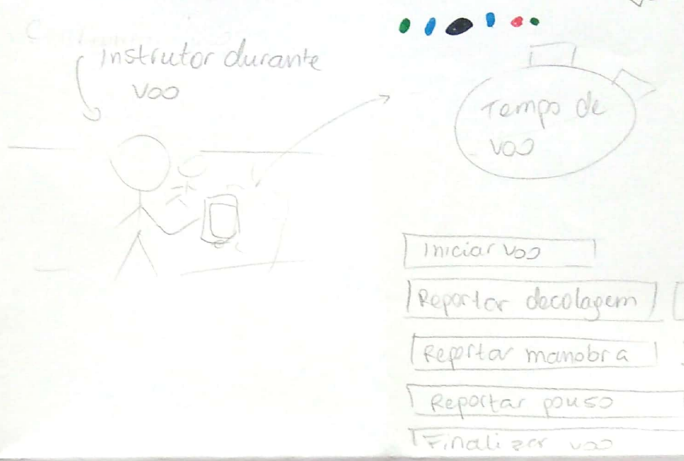 Instrutor durante
voo
Tempo de
voo
Iniciar voo
Reportar decolagem
Reportar manobra
Reportar pouso
Finalizar voo